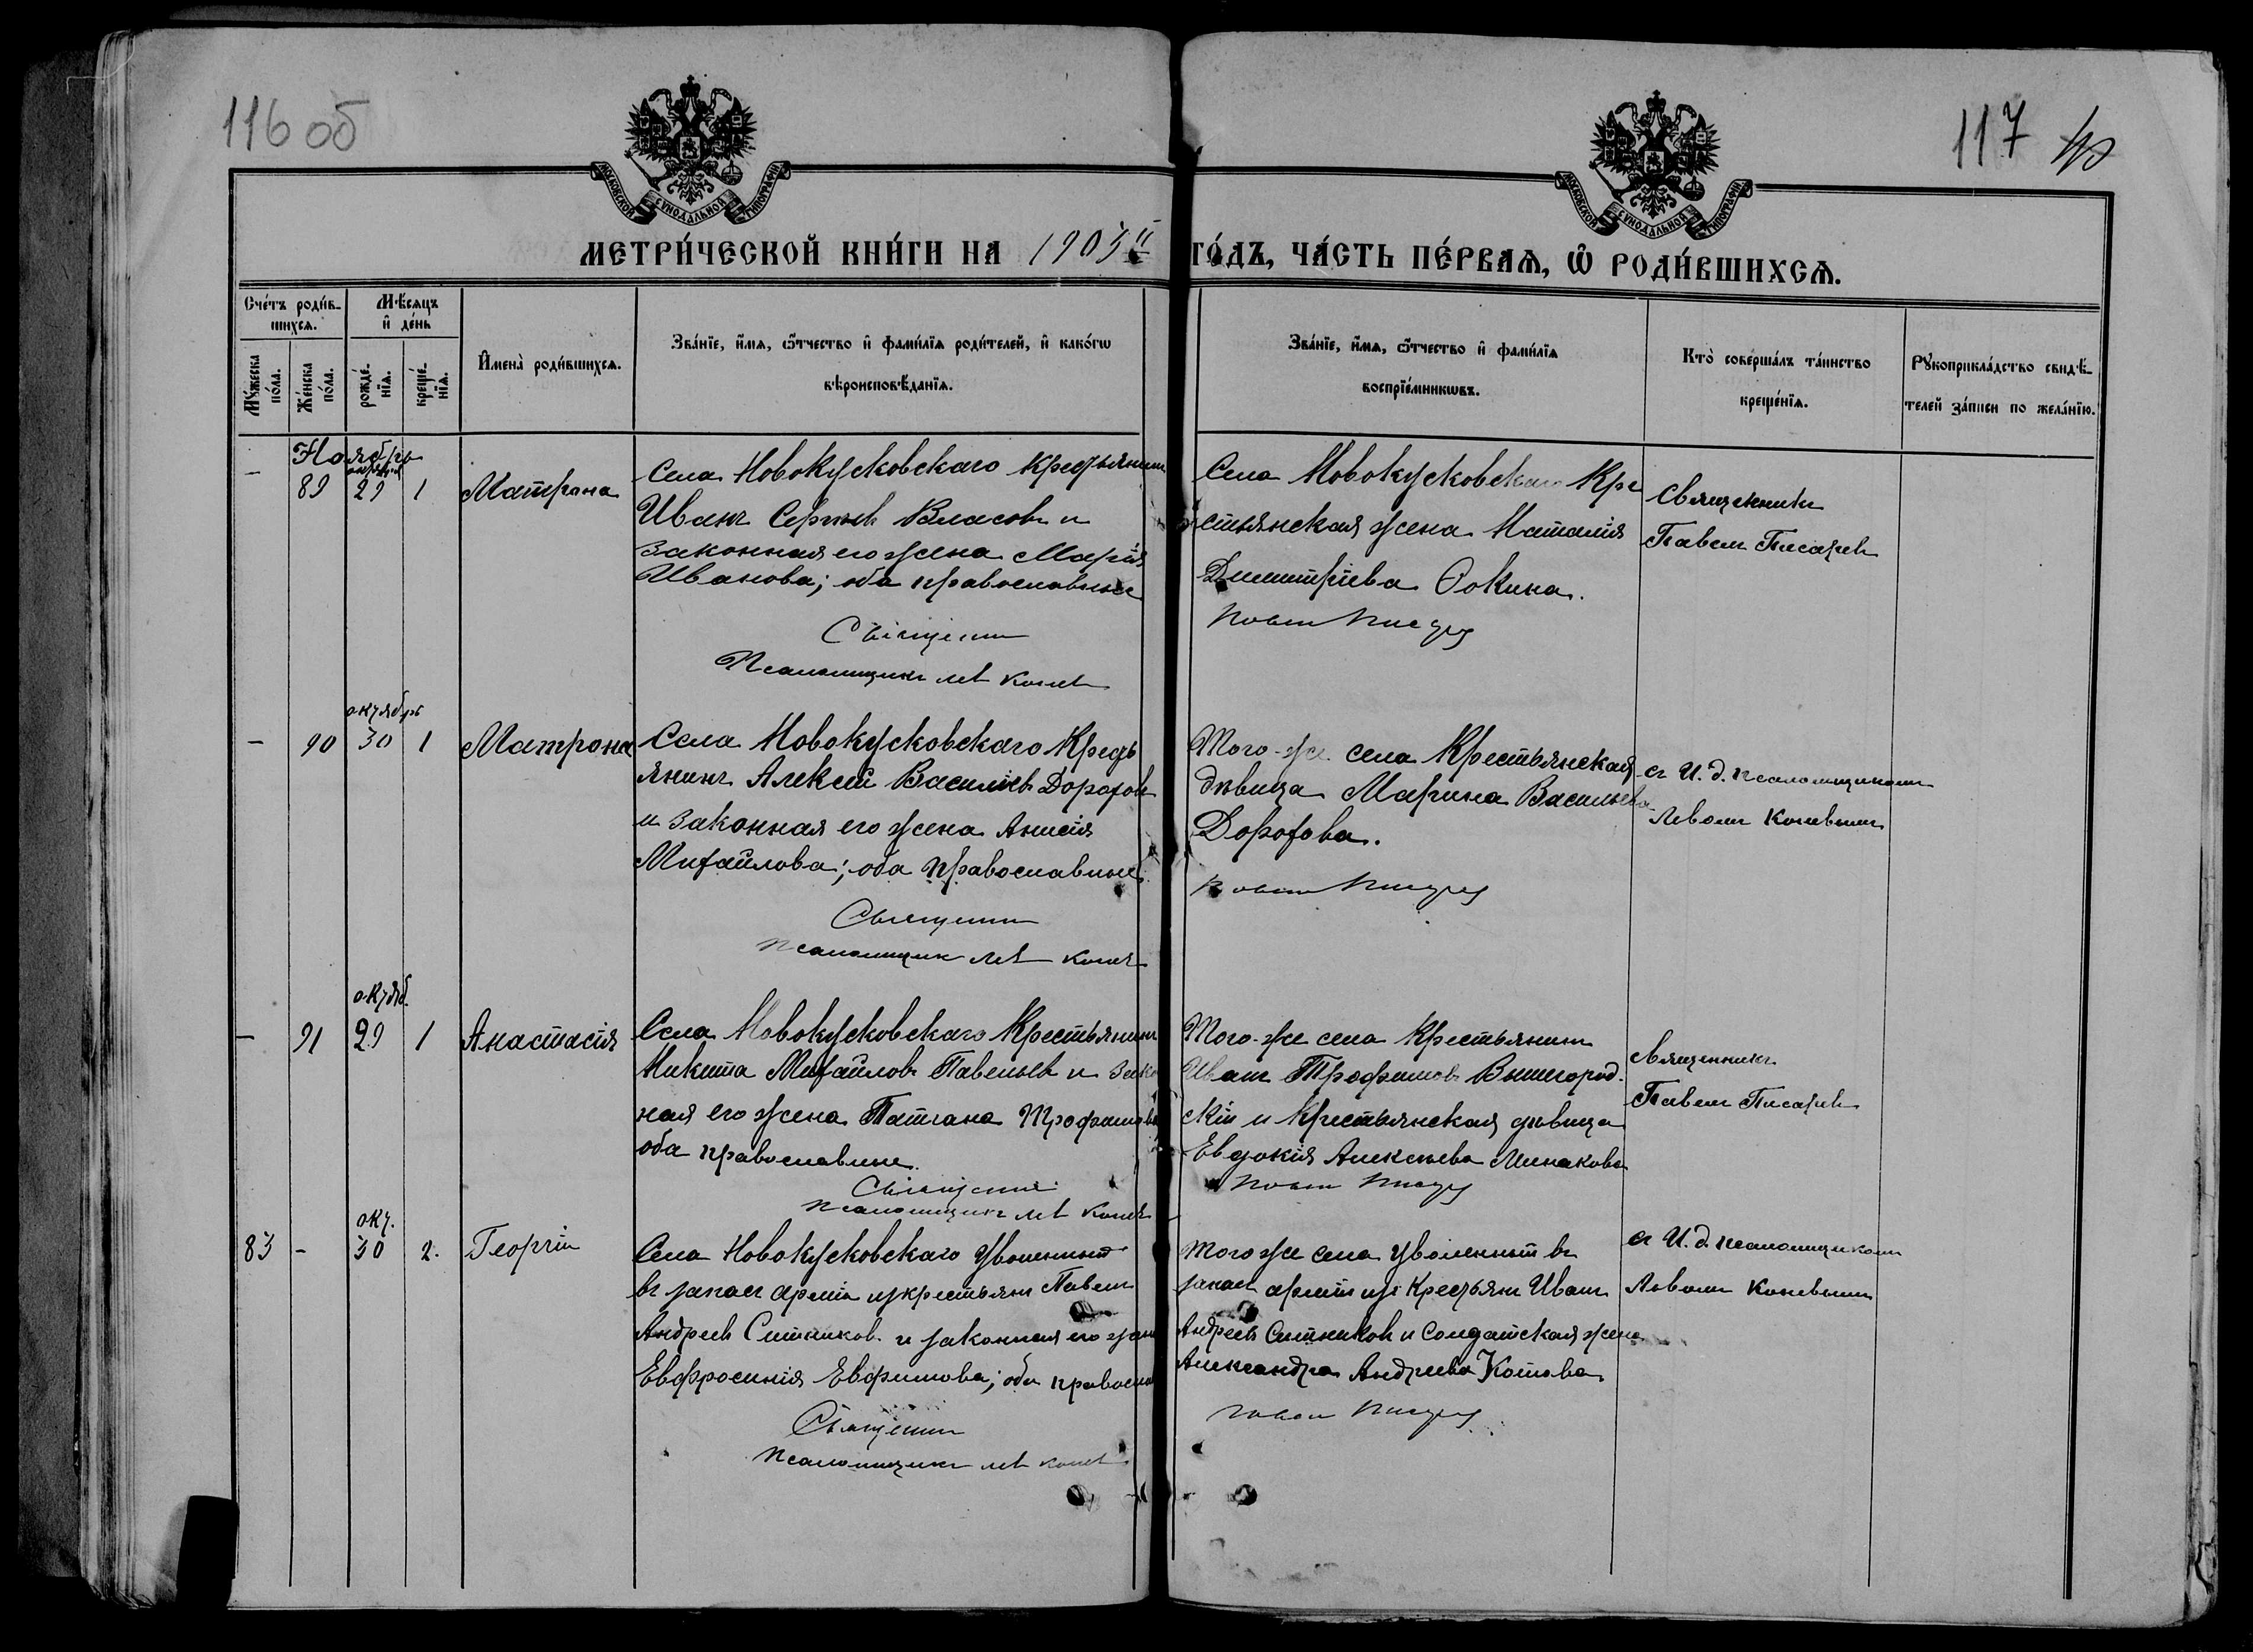 116 об
117
МОСКОВСКОЙ СѴНОДАЛЬНОЙ ТИПОГРАФІИ
МОСКОВСКОЙ СѴНОДАЛЬНОЙ ТИПОГРАФІИ
МЕТРИ́ЧЕСКОЙ КНИ́ГИ НА 1903й ГО́ДЪ, ЧА́СТЬ ПЕ́РВАѦ, Ѽ РОДИ́ВШИХСѦ.
Сче́тъ роди́в-
шихсѧ.
Мꙋ́жеска
по́ла.
Же́нска
по́ла.
Мѣ́сѧцъ
и҆ де́нь
рожде́-
нїѧ.
креще́-
нїѧ.
И҆мена̀ роди́вшихсѧ.
Зва́нїе, и҆́мѧ, ѻ҆́тчество и҆ фами́лїѧ роди́телей, и҆ како́гѡ
вѣроисповѣ́данїѧ.
Зва́нїе, и҆́мѧ, ѻ҆́тчество и҆ фами́лїѧ
воспрїе́мникѡвъ.
Кто̀ соверша́лъ та́инство
креще́нїѧ.
Рꙋкоприкла́дство свидѣ́-
телей за́писи по жела́нїю.
Ноябрь
октября
– 89 29 1 Матрона
Села Новокусковскаго крестьянинъ
Иванъ Сергѣевъ Власовъ и
законная его жена Марія
Иванова; оба православные
Священникъ
Псаломщикъ Левъ Коневъ
Села Новокусковскаго Кре
стьянская жена Наталія
Димитріева Фокина.
Павелъ Писаревъ
Священникъ
Павелъ Писаревъ
октября
– 90 30 1 Матрона
Села Новокусковскаго Кресть
янинъ Алексѣй Васильевъ Дороховъ
и законная его жена Анисія
Михайлова; оба православные
Священникъ
Псаломщикъ Левъ Коневъ
Того-же села Крестьянская
дѣвица Марина Васильева
Дорохова.
Павелъ Писаревъ
съ И. д. псаломщикомъ
Львомъ Коневымъ
октяб.
– 91 29 1 Анастасія
Села Новокусковскаго Крестьянинъ
Никита Михайловъ Павельевъ и зако
ная его жена Татіана Трофимова
оба православные.
Священникъ
Псаломщикъ Левъ Коневъ
Того-же села Крестьянинъ
Иванъ Трофимовъ Вышегород-
скій и Крестьянская дѣвица
Евдокія Алексѣева Минакова
Павелъ Писаревъ
Священникъ
Павелъ Писаревъ
окт.
83 – 30 2. Георгій
Села Новокусковскаго уволенный
въ запасъ арміи изъ крестьянъ Павелъ
Андреевъ Ситниковъ и законная его жена
Евфросинія Евфимова; оба правосла
Священникъ
Псаломщикъ Левъ Коневъ
Того же села уволенный въ
запасъ арміи изъ Крестьянъ Иванъ
Андреевъ Ситниковъ и Солдатская жена
Александра Андреева Котова
Павелъ Писаревъ
съ И. д. псаломщикомъ
Львомъ Коневымъ